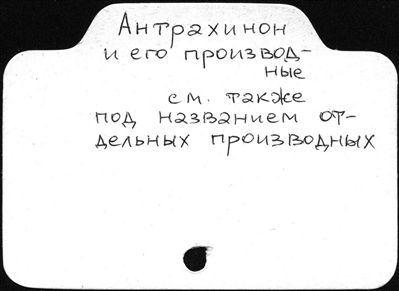 Антрахинон
и его производ-
ные
см. также
под названием от-
дельных производных